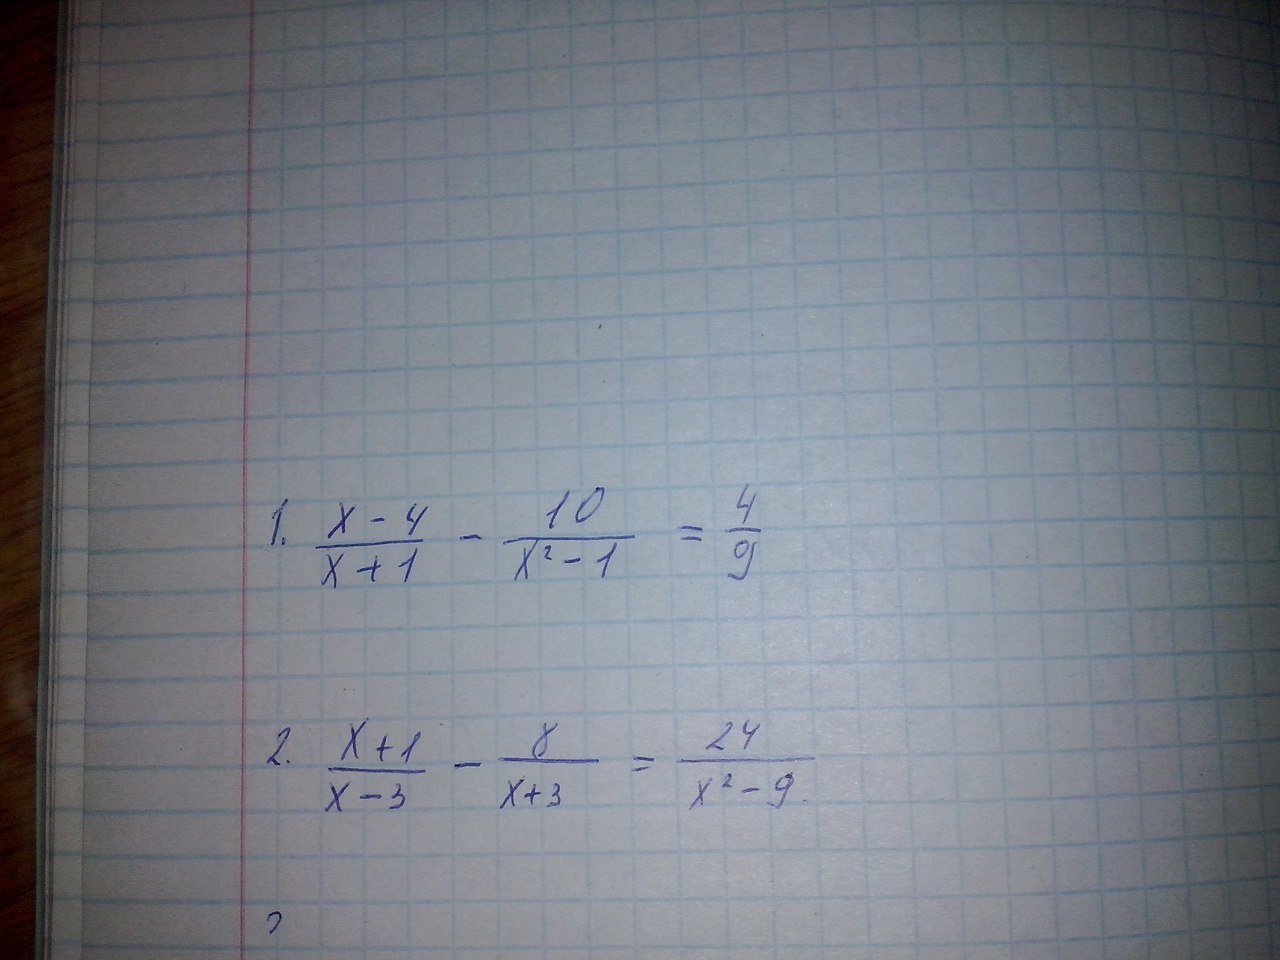 1. (x-4)/(x+1) - 10/(x²-1) = 4/9
2. (x+1)/(x-3) - 8/(x+3) = 24/(x²-9)